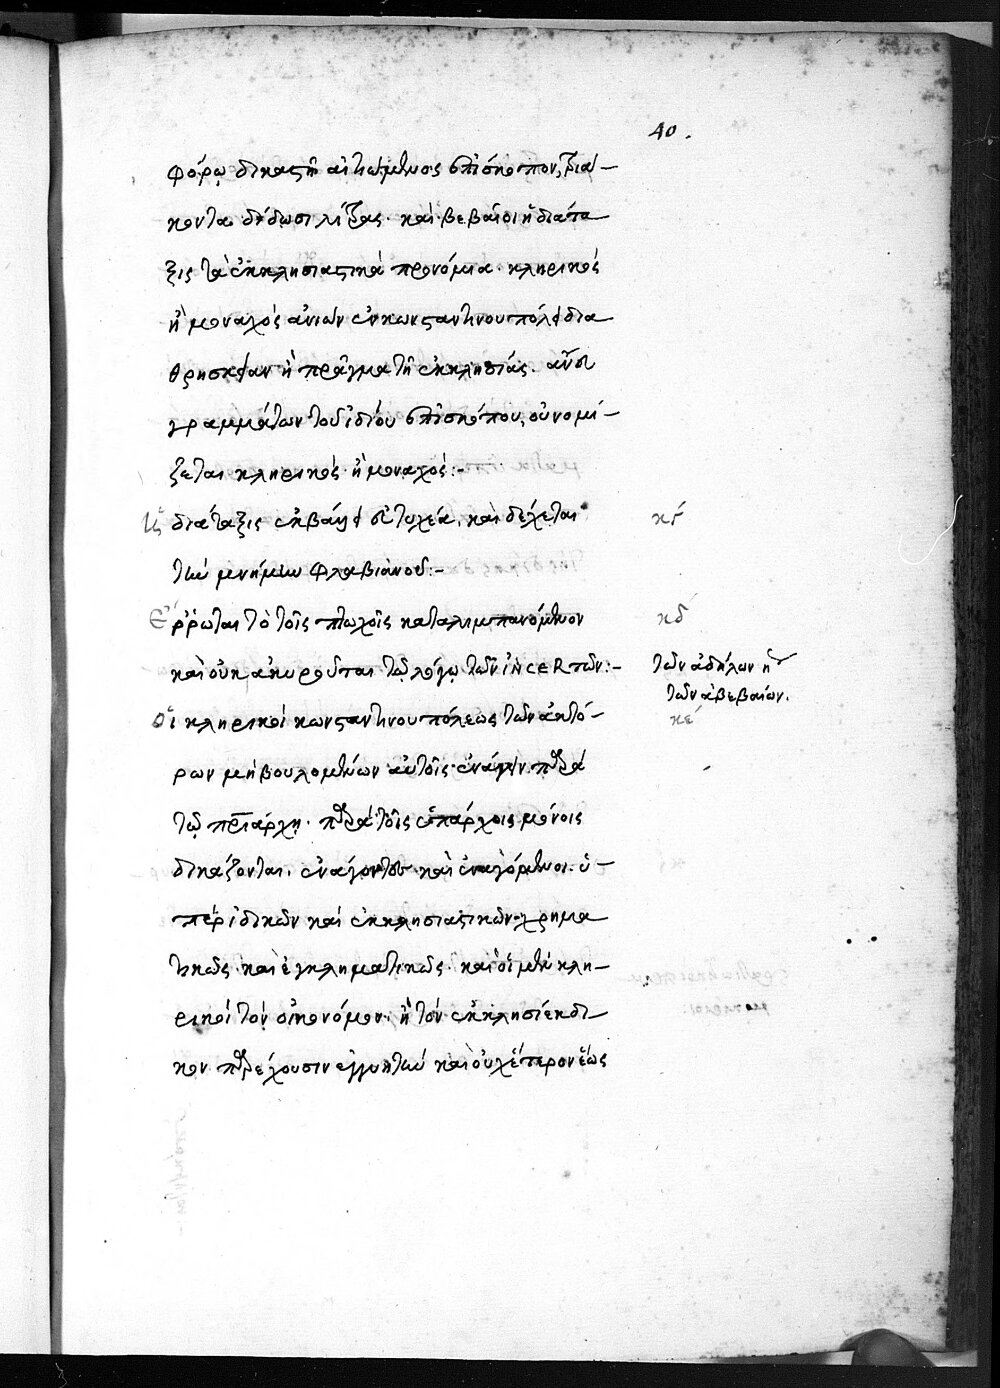 40.
φόρῳ δικαστῇ αἰτιώμενος ἐπίσκοπον, τριά-
κοντα δίδωσι λίτρας. καὶ βεβαιοῖ ἡ διάτα
ξις τὰ ἐκκλησιαστικὰ προνόμια. κληρικὸς
ἢ μοναχὸς ἀνιὼν ἐν κωνσταντινουπόλει δια
θρησκείαν ἢ πράγματι ἐκκλησίας. ἄνευ
γραμμάτων τοῦ ἰδίου ἐπισκόπου, οὐ νομί-
ζεται κληρικὸς ἢ μοναχός:-
διάταξις ἐκβάλλει εὐτυχέα, καὶ δέχεται κγ΄
τὴν μνήμην φλαβιανοῦ:-
Ἔρρωται τὸ τοῖς πτωχοῖς καταλιμπανόμενον κδ΄
καὶ οὐκ ἀκυροῦται τῷ λόγῳ τῶν INCERτων:- τῶν ἀδήλων ἢ
τῶν ἀβεβαίων.
Οἱ κληρικοὶ κωνσταντινουπόλεως τῶν ἀκτό- κε΄
ρων μὴ βουλομένων αὐτοῖς ἐνάγειν παρὰ
τῷ πατριάρχῃ. παρὰ τοῖς ἐπάρχοις μόνοις
δικάζονται. ἐνάγοντες καὶ ἐναγόμενοι. ὑ-
πὲρ ἰδικῶν καὶ ἐκκλησιαστικῶν χρημα
τικῶς καὶ ἐγκληματικῶς. καὶ οἱ μὲν κλη-
ρικοὶ τὸν οἰκονόμον. ἢ τὸν ἐκκλησιέκδι
κον παρέχουσιν ἐγγυητὴν καὶ οὐχ ἕτερον ἕως